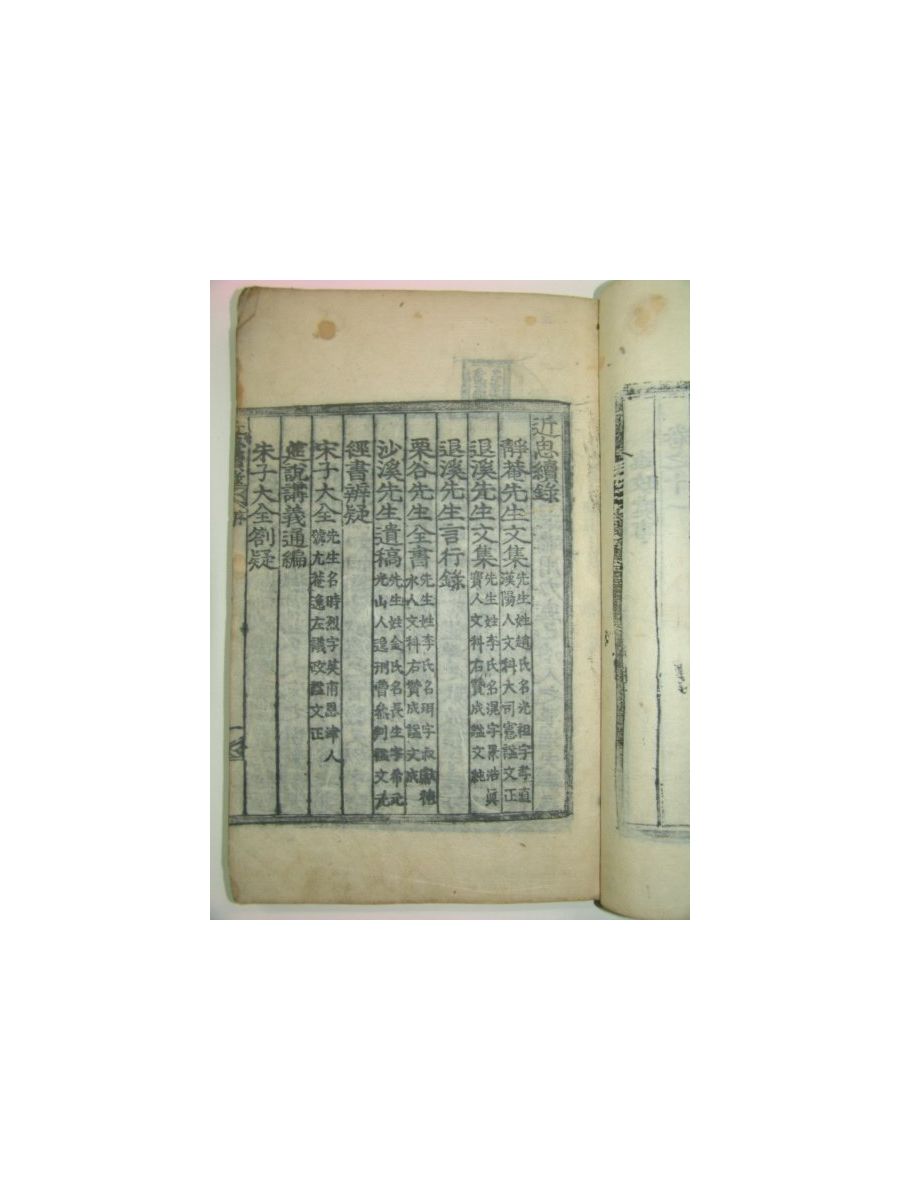 近思續錄
靜菴先生文集 先生姓趙氏名光祖字孝直
漢陽人文科大司憲諡文正
退溪先生文集 先生姓李氏名滉字景浩眞
寶人文科右贊成諡文純
退溪先生言行錄
栗谷先生全書 先生姓李氏名珥字叔獻德
水人文科右贊成諡文成
沙溪先生遺稿 先生姓金氏名長生字希元
光山人逸刑曹參判諡文元
經書辨疑
宋子大全 先生名時烈字英甫恩津人
號尤菴逸左議政諡文正
筵說講義通編
朱子大全劄疑